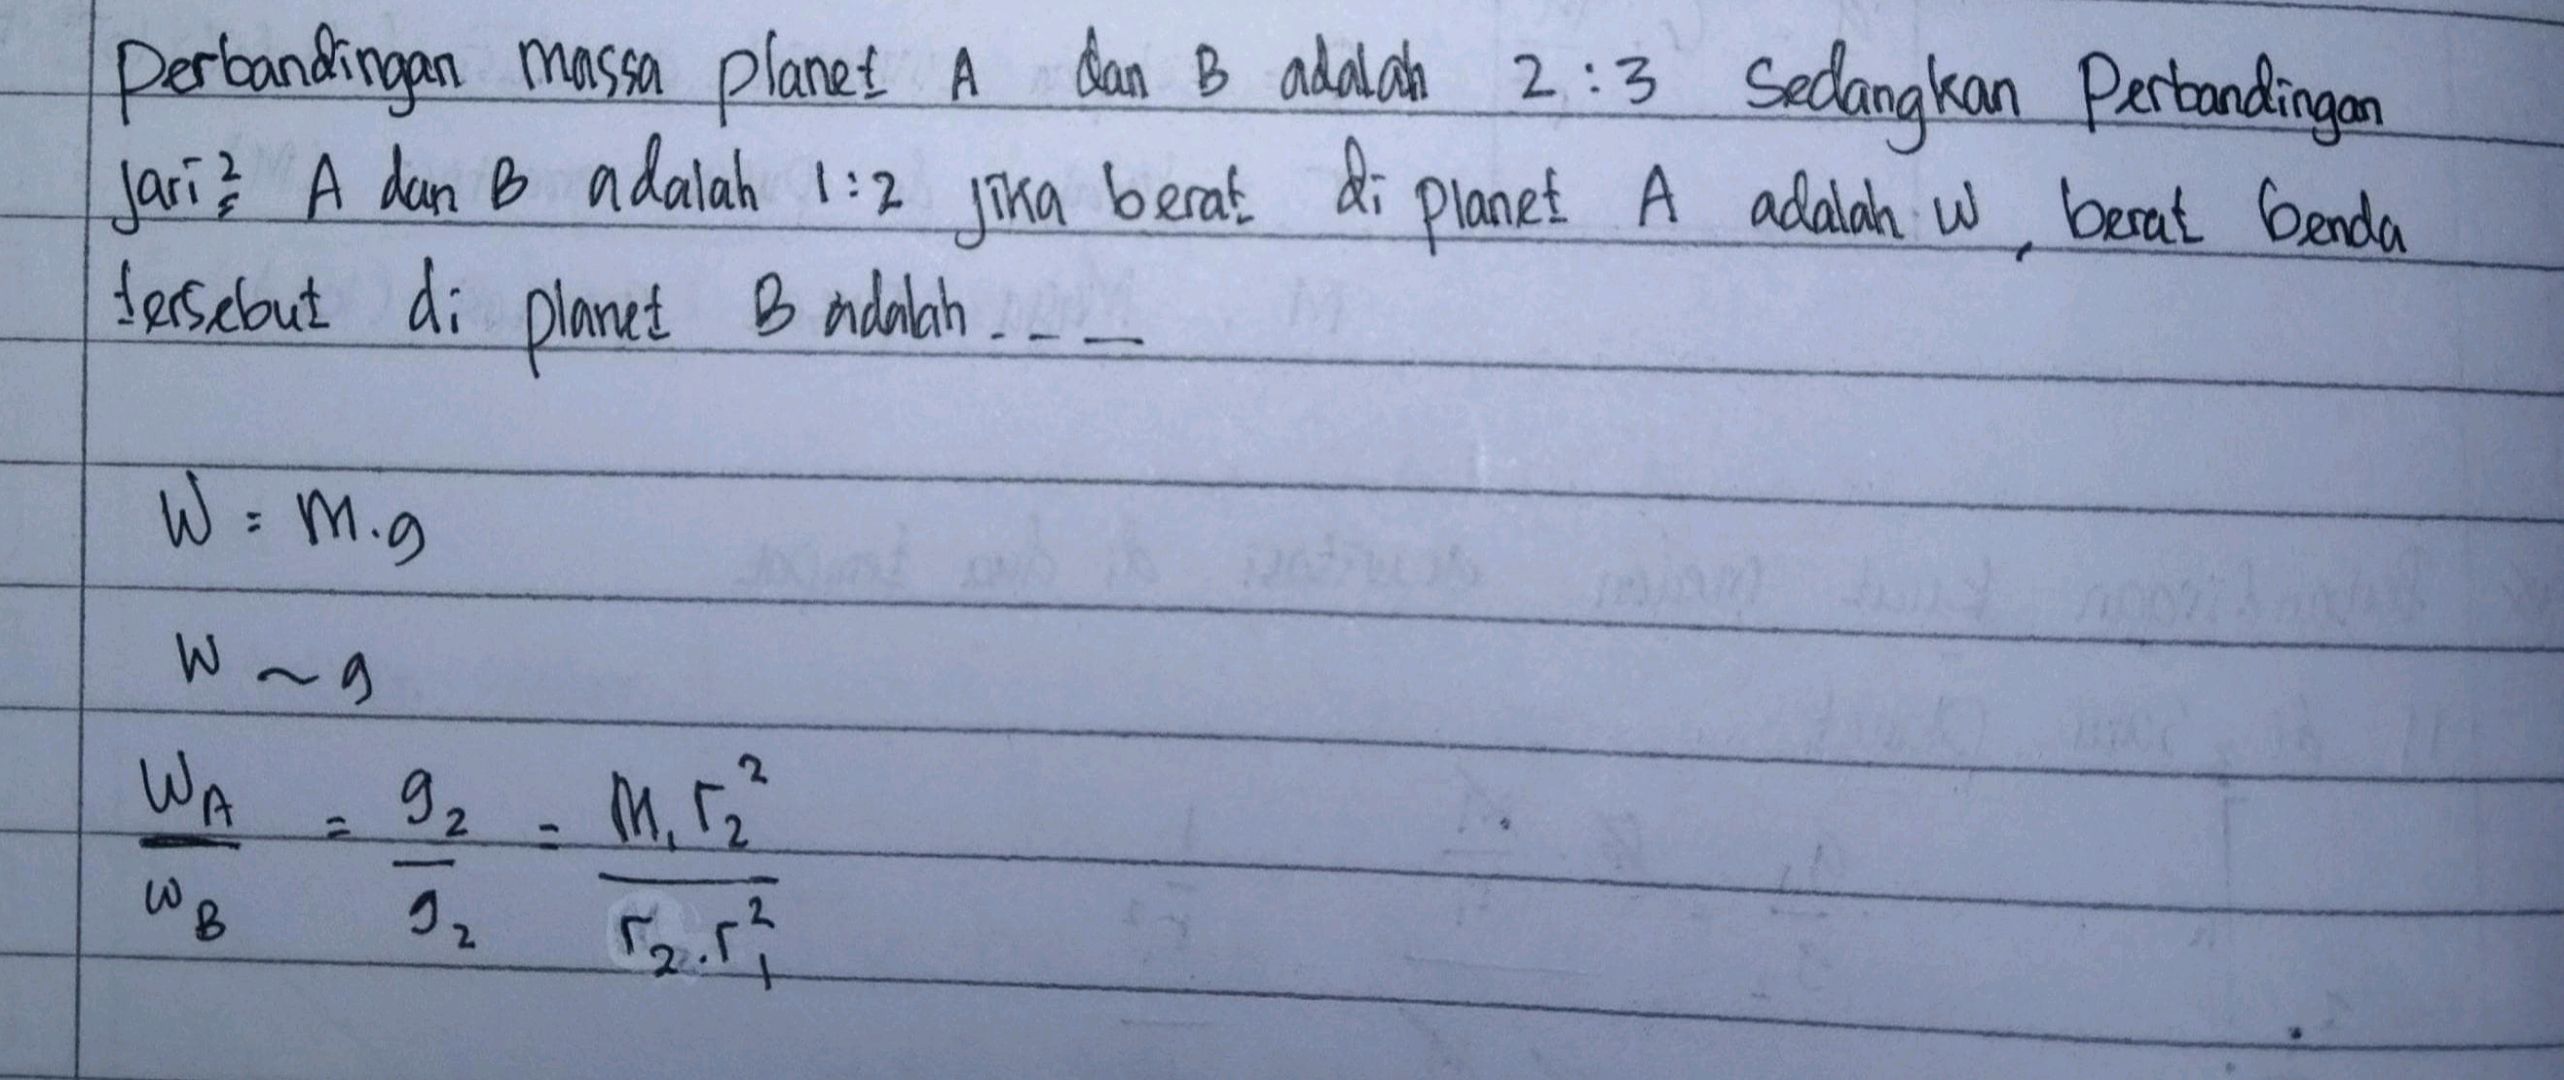 Perbandingan massa planet A dan B adalah 2:3 Sedangkan Perbandingan
jari² A dan B adalah 1:2 jika berat di planet A adalah w, berat benda
tersebut di planet B adalah ---
W = m.g
W ~ g
W_A / W_B = g_2 / g_2 = M_1 r_2^2 / r_2 . r_1^2